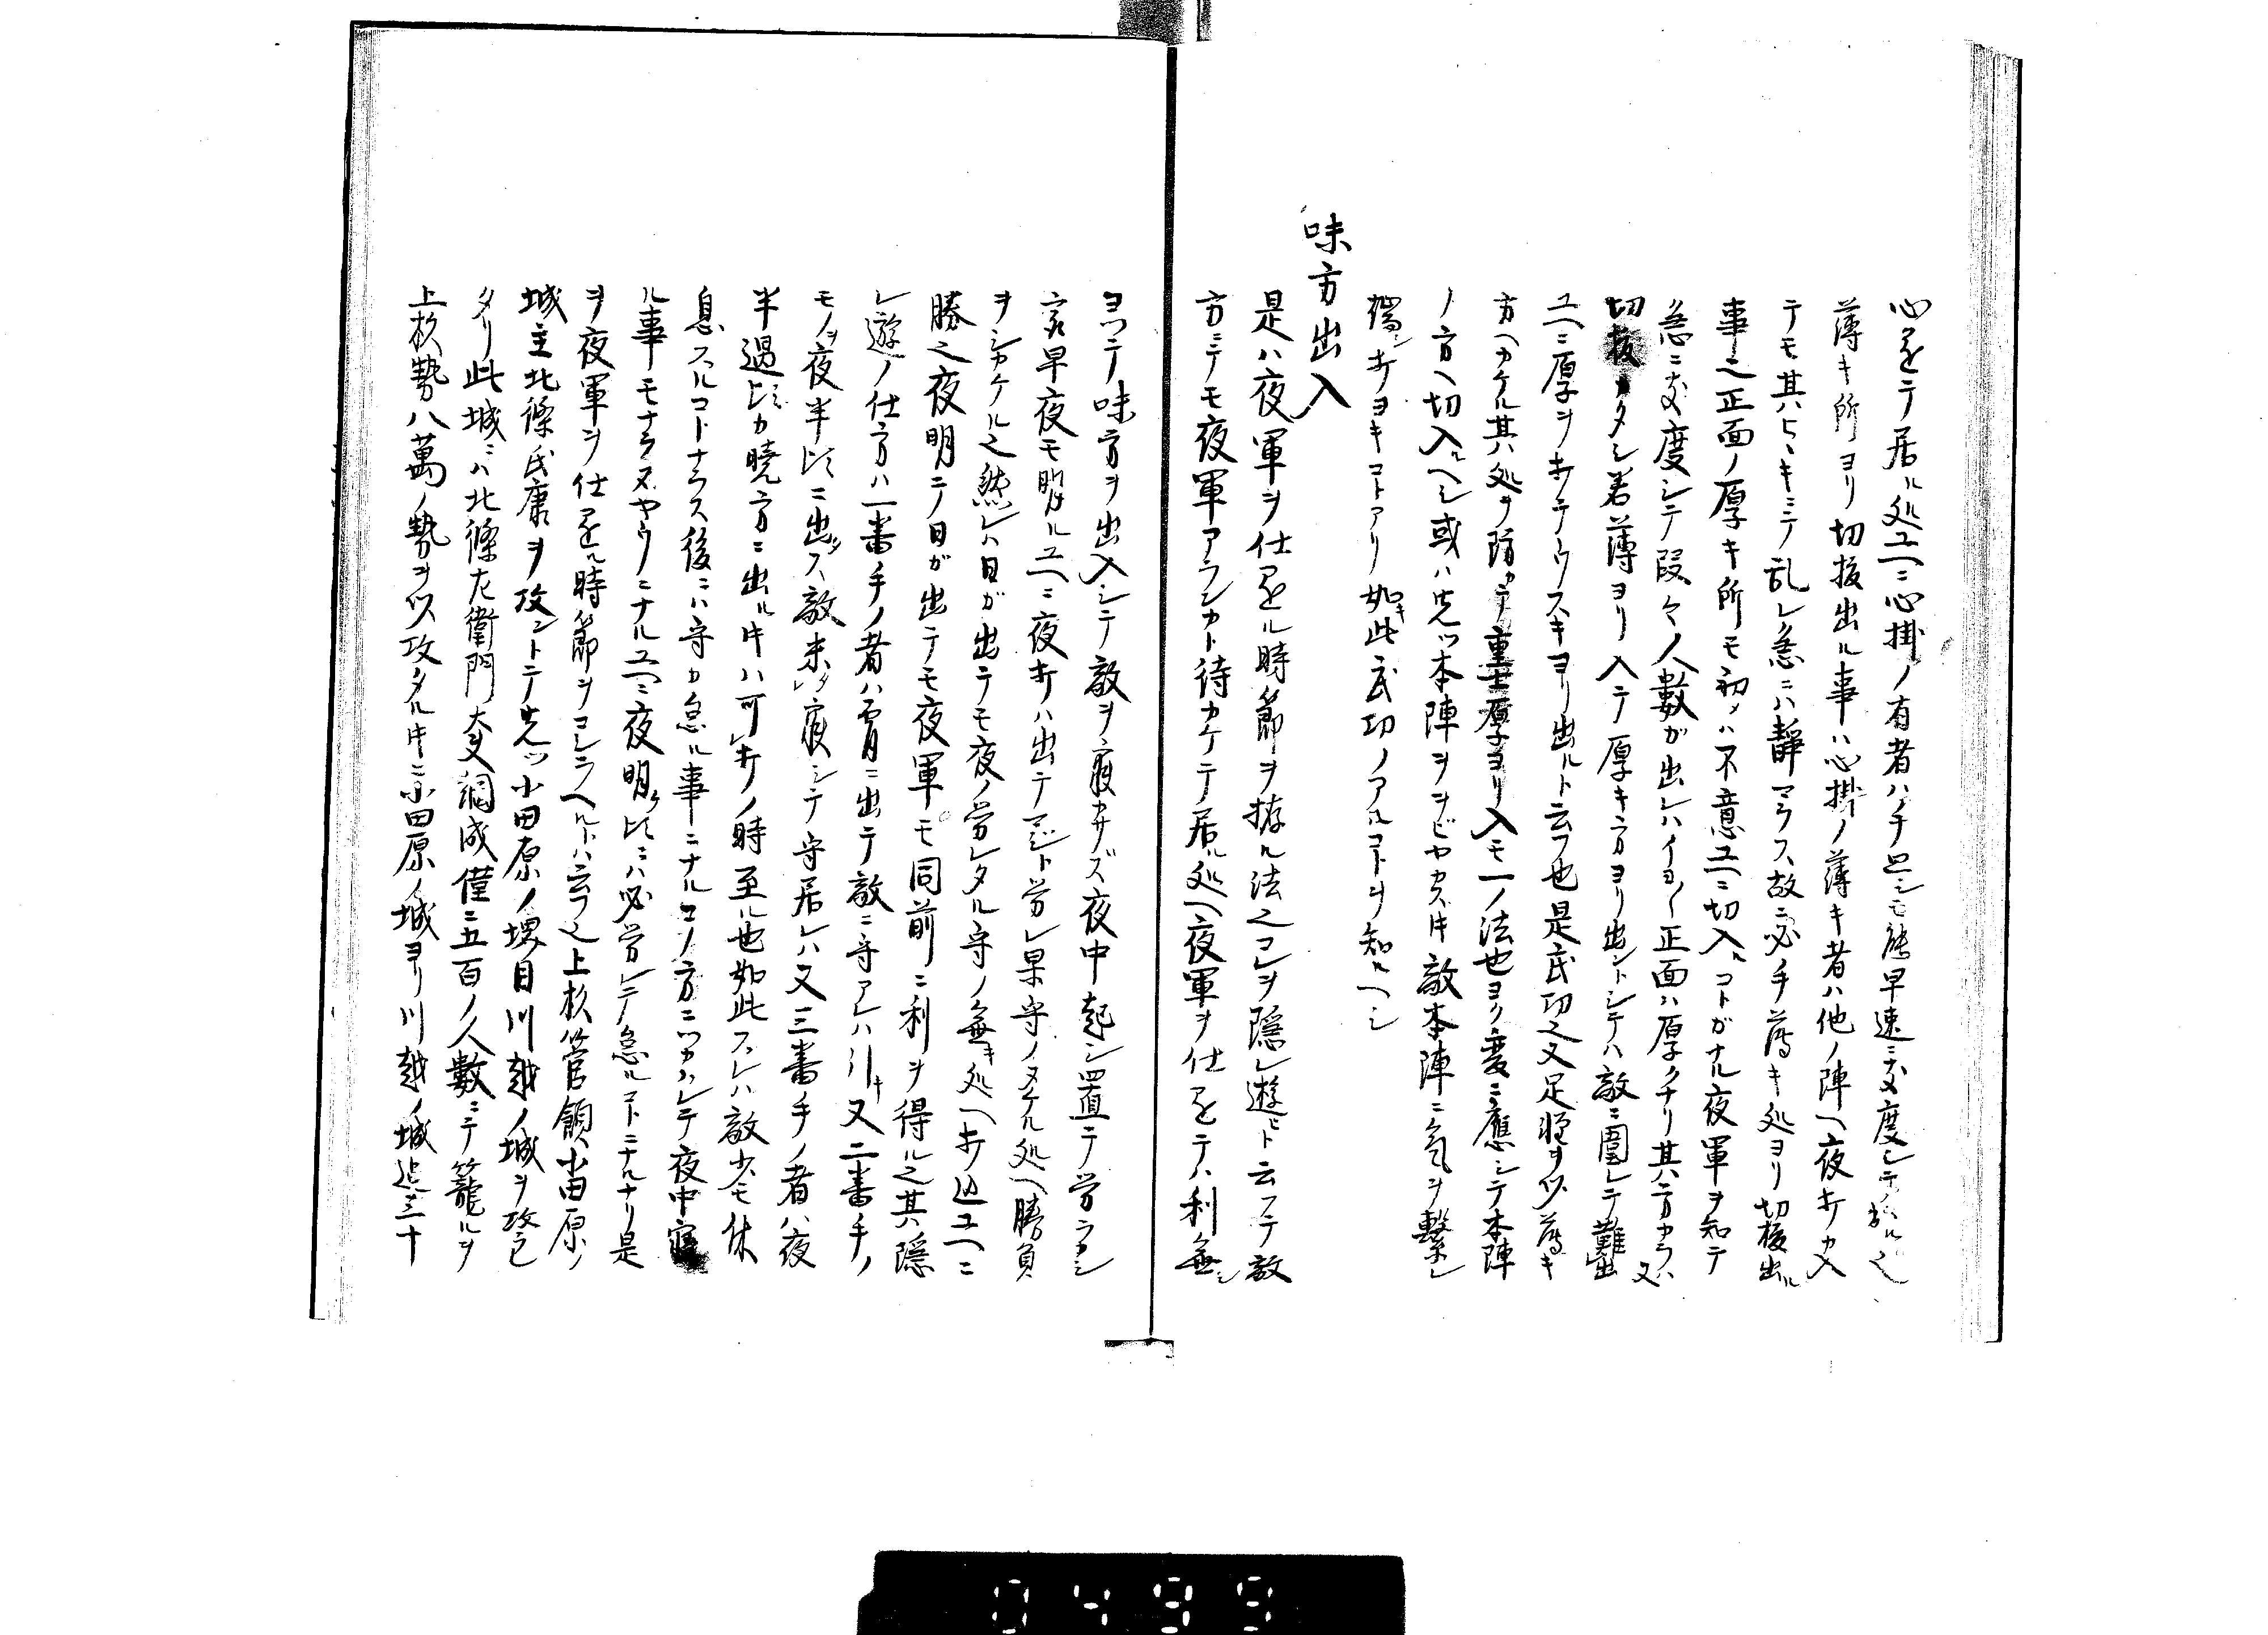 心得テ居ル処ユヘニ心掛ノ有者ハチトニモ能早速ニ支度シテ出ル也
薄キ所ヨリ切抜出ル事ハ心掛ノ薄キ者ハ他ノ陣ヘ夜討カ入
テモ其ヒヽキニテ乱レ急ニハ静マラス故ニ必手薄キ処ヨリ切抜出ル
事也正面ノ厚キ所モ初メハ不意ユヘニ切入ルコトガナル夜軍ヲ知テ
急ニ支度シテ段々ノ人数ガ出レハイヨ〳〵正面ハ厚クナリ其方カラハ又
切抜カタシ若薄ヨリ入テ厚キ方ヨリ出ントシテハ敵ニ圍レテ難出
ユヘニ厚ヲ討テウスキヨリ出ルト云フ也是武功也又足軽ヲ以薄キ
方ヘカケル其処ヲ防カテ重厚ヨリ入モ一ノ法也ヨク変ニ應シテ本陣
ノ方ヘ切入ルヘシ或ハ先ツ本陣ヲヲビヤカス時敵本陣ニ気ヲ繋レ
端シ討ヨキコトアリ如キ此武功ノアルコトヲ知ルヘシ
味方出入
是ハ夜軍ヲ仕得ル時節ヲ揀ル法也コレヲ隠レ遊ヒト云フテ敵
方ニテモ夜軍アランカト待カケテ居ル処ヘ夜軍ヲ仕得テハ利無シ
ヨツテ味方ヲ出入シテ敵ヲ寝カサズ夜中起シ置テ労ラカシ
最早夜モ明ルユヘニ夜討ハ出テマジト労レ果守ノヌケル処ヘ勝負
ヲシカケル也然レハ日ガ出テモ夜ノ労レタル守ノ無キ処ヘ討込ユヘニ
勝也夜明ニノ日ガ出テモ夜軍モ同前ニ利ヲ得ル也其隠
レ遊ノ仕方ハ一番手ノ者ハ宵ニ出テ敵ニ守アレハ引キ又二番手ノ
モノヲ夜半比ニ出タス敵未タ寝シテ守居レハ又三番手ノ者ハ夜
半過比カ暁方ニ出ル時ハ可レ討ノ時至ル也如此スレハ敵少モ休
息スルコトナラス後ニハ守カ怠ル事ニナルコノ方ニツカハレテ夜中寝
ル事モナラヌヤウニナルユヘニ夜明ケ比ニハ必労レテ怠ルコトニナルナリ是
ヲ夜軍ヲ仕得ル時節ヲコシラヘルトハ云フ也上杉管領小田原ノ
城主北條氏康ヲ攻ントテ先ツ小田原ノ境目川越ノ城ヲ攻ラレ
タリ此城ニハ北條左衛門大夫綱成僅ニ五百ノ人数ニテ籠ルヲ
上杉勢八萬ノ勢ヲ以攻タル時ニ小田原ノ城ヨリ川越ノ城迄三十
0499